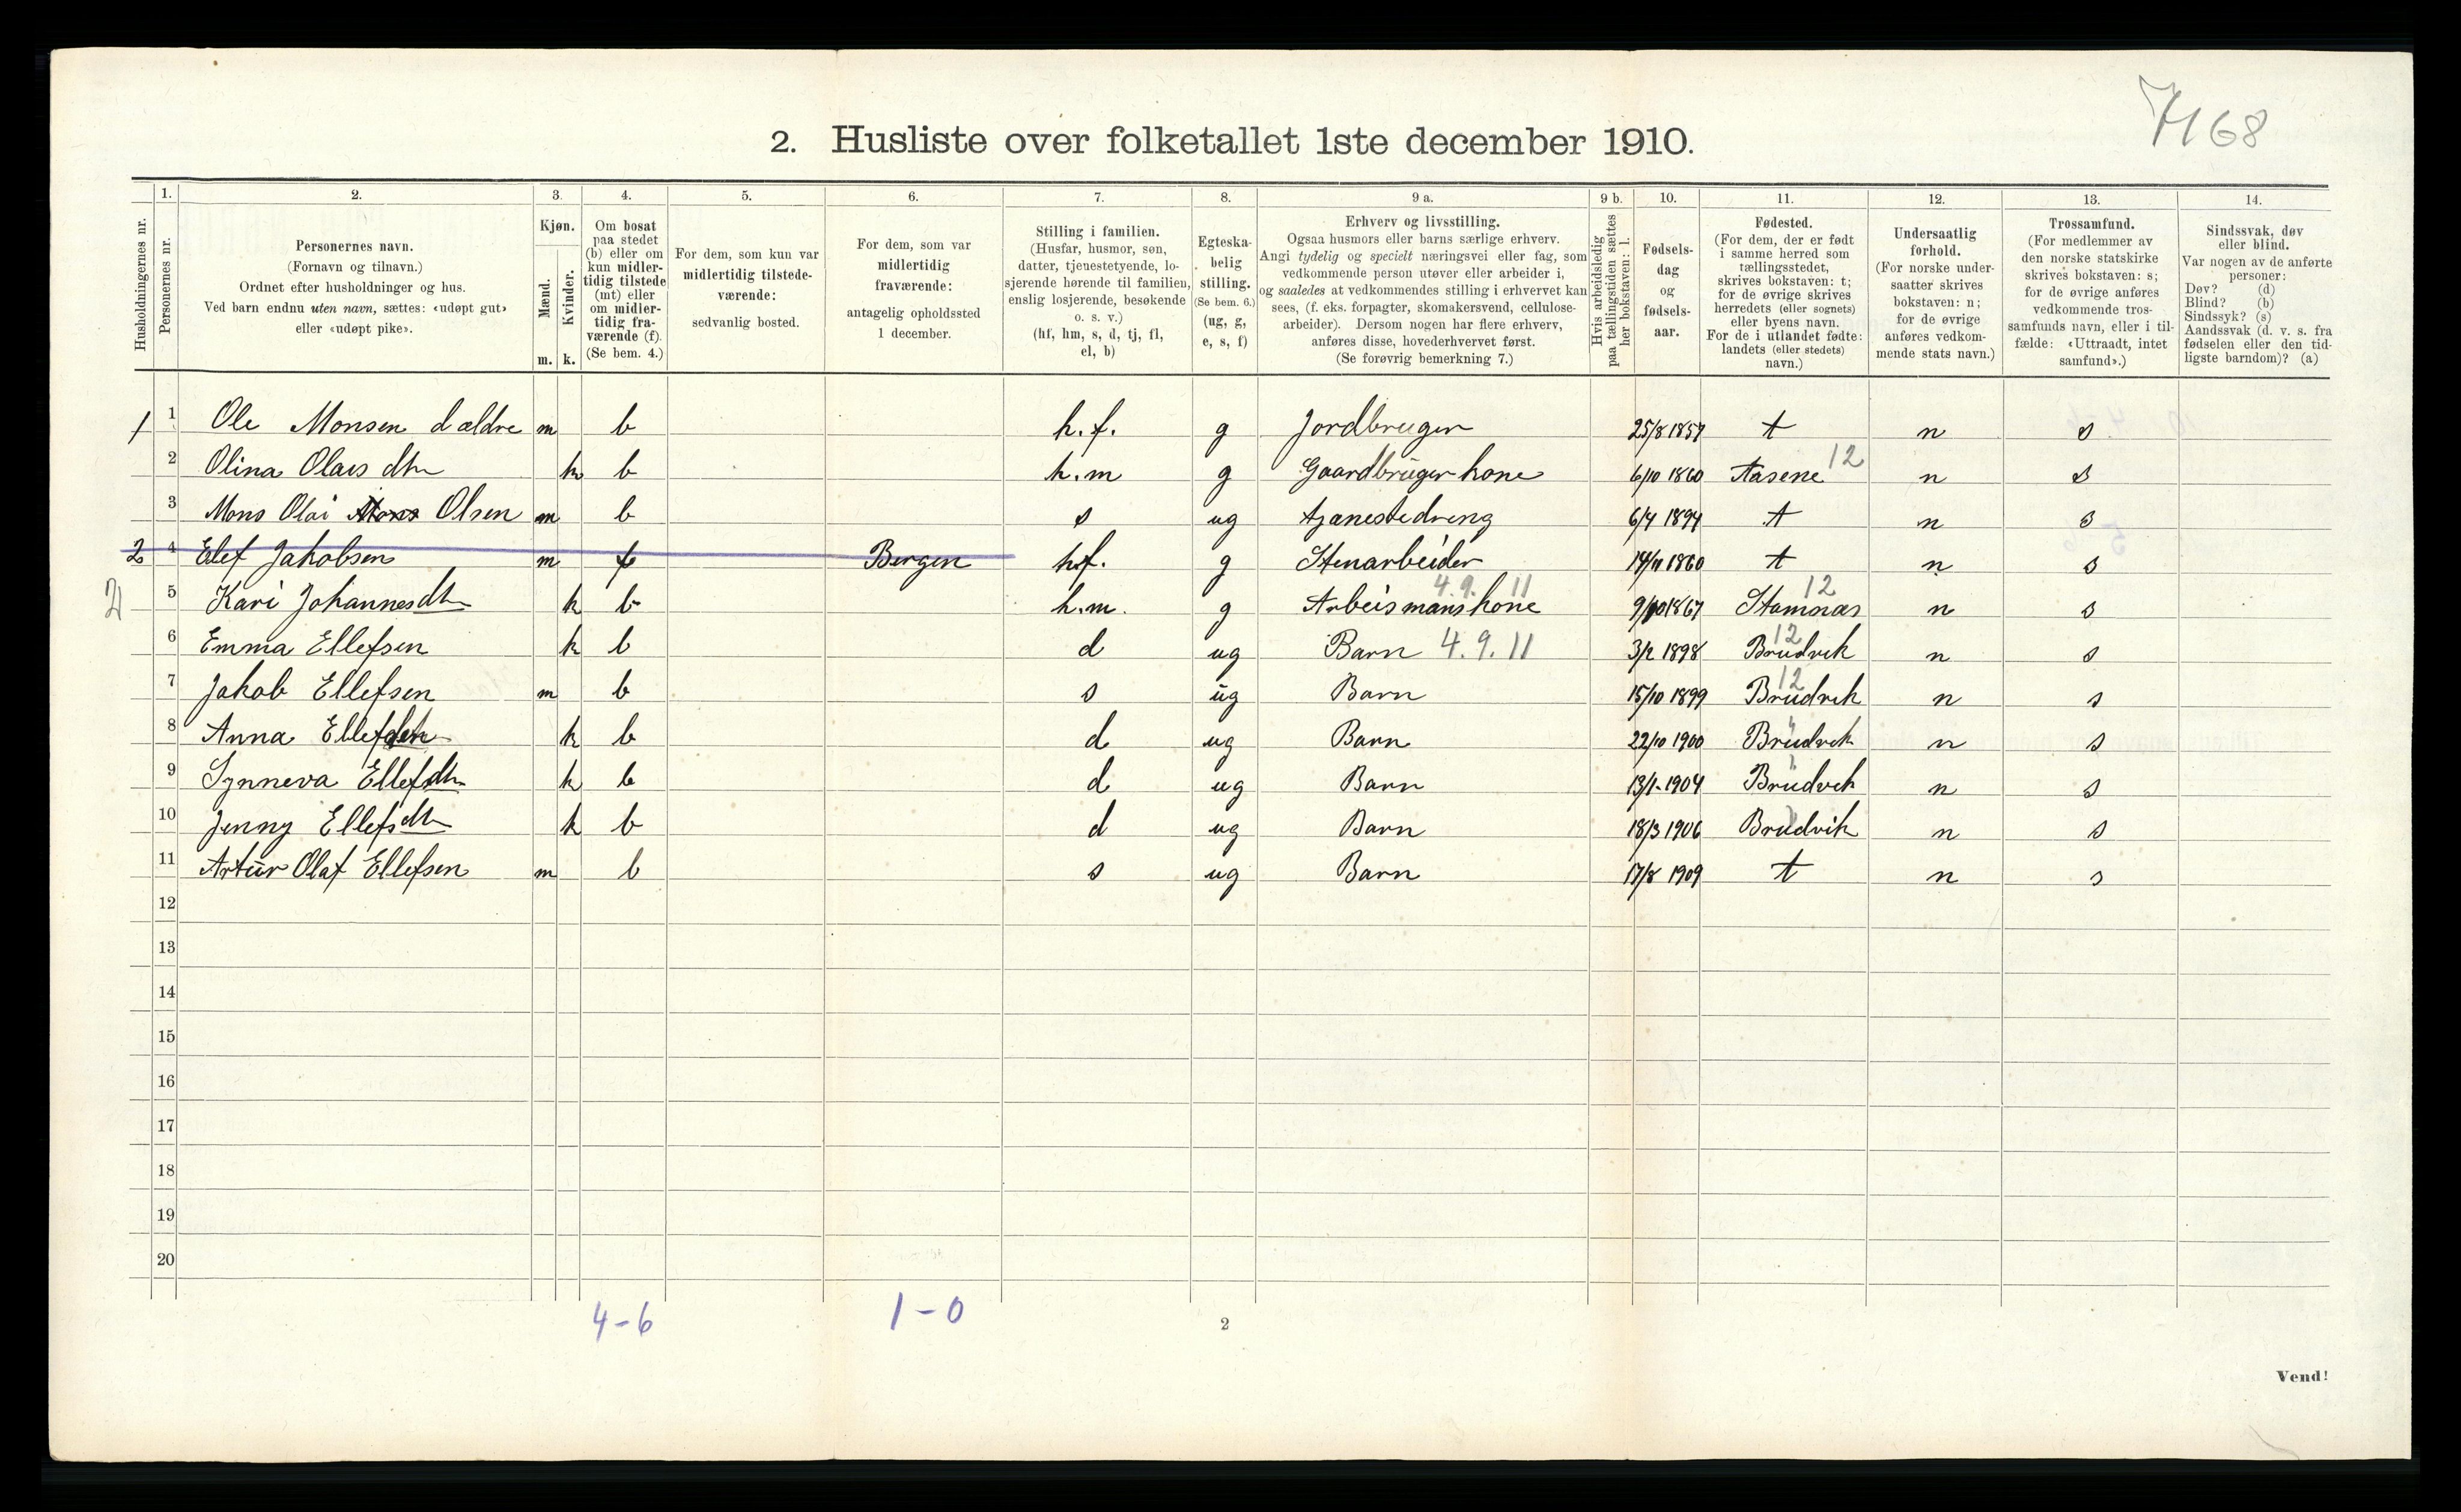 7168
2. Husliste over folketallet 1ste december 1910.
Husholdningernes nr.
1. Personernes nr.
2. Personernes navn. (Fornavn og tilnavn.) Ordnet efter husholdninger og hus. Ved barn endnu uten navn, sættes: «udøpt gut» eller «udøpt pike».
3. Kjøn. Mænd. m. Kvinder. k.
4. Om bosat paa stedet (b) eller om kun midlertidig tilstede (mt) eller om midlertidig fraværende (f). (Se bem. 4.)
5. For dem, som kun var midlertidig tilstedeværende: sedvanlig bosted.
6. For dem, som var midlertidig fraværende: antagelig opholdssted 1 december.
7. Stilling i familien. (Husfar, husmor, søn, datter, tjenestetyende, losjerende hørende til familien, enslig losjerende, besøkende o. s. v.) (hf, hm, s, d, tj, fl, el, b)
8. Egteskabelig stilling. (Se bem. 6.) (ug, g, e, s, f)
9 a. Erhverv og livsstilling. Ogsaa husmors eller barns særlige erhverv. Angi tydelig og specielt næringsvei eller fag, som vedkommende person utøver eller arbeider i, og saaledes at vedkommendes stilling i erhvervet kan sees, (f. eks. forpagter, skomakersvend, cellulosearbeider). Dersom nogen har flere erhverv, anføres disse, hovederhvervet først. (Se forøvrig bemerkning 7.)
9 b. Hvis arbeidsledig paa tællingstiden sættes her bokstaven: l.
10. Fødselsdag og fødselsaar.
11. Fødested. (For dem, der er født i samme herred som tællingsstedet, skrives bokstaven: t; for de øvrige skrives herredets (eller sognets) eller byens navn. For de i utlandet fødte: landets (eller stedets) navn.)
12. Undersaatlig forhold. (For norske undersaatter skrives bokstaven: n; for de øvrige anføres vedkommende stats navn.)
13. Trossamfund. (For medlemmer av den norske statskirke skrives bokstaven: s; for de øvrige anføres vedkommende trossamfunds navn, eller i tilfælde: «Uttraadt, intet samfund».)
14. Sindssvak, døv eller blind. Var nogen av de anførte personer: Døv? (d) Blind? (b) Sindssyk? (s) Aandssvak (d. v. s. fra fødselen eller den tidligste barndom)? (a)
1 1 Ole Monsen d ældre m b h.f. g Jordbruger 25/8 1857 t n s
2 Olina Olais dtr k b h.m g Gaardbruger kone 6/10 1860 Aasene 12 n s
3 Mons Olai Mons Olsen m b s ug tjenestedreng 6/4 1894 t n s
2 4 Elef Jakobsen m f Bergen hf. g Stenarbeider 14/11 1860 t n s
2 5 Kari Johannesdtr k b h.m. g Arbeismans kone 4.9.11 9/10 1867 Stamnæs 12 n s
6 Emma Ellefsen k b d ug Barn 4.9.11 3/2 1898 Brudvik 12 n s
7 Jakob Ellefsen m b s ug Barn 15/10 1899 Brudvik 12 n s
8 Anna Ellefsdtr k b d ug Barn 22/10 1900 Brudvik " n s
9 Synneva Ellefsdtr k b d ug Barn 13/1-1904 Brudvik " n s
10 Jenny Ellefsdtr k b d ug Barn 18/3 1906 Brudvik n s
11 Artur Olaf Ellefsen m b s ug Barn 17/8 1909 t n s
12
13
14
15
16
17
18
19
20
4-6 1-0
2
Vend!